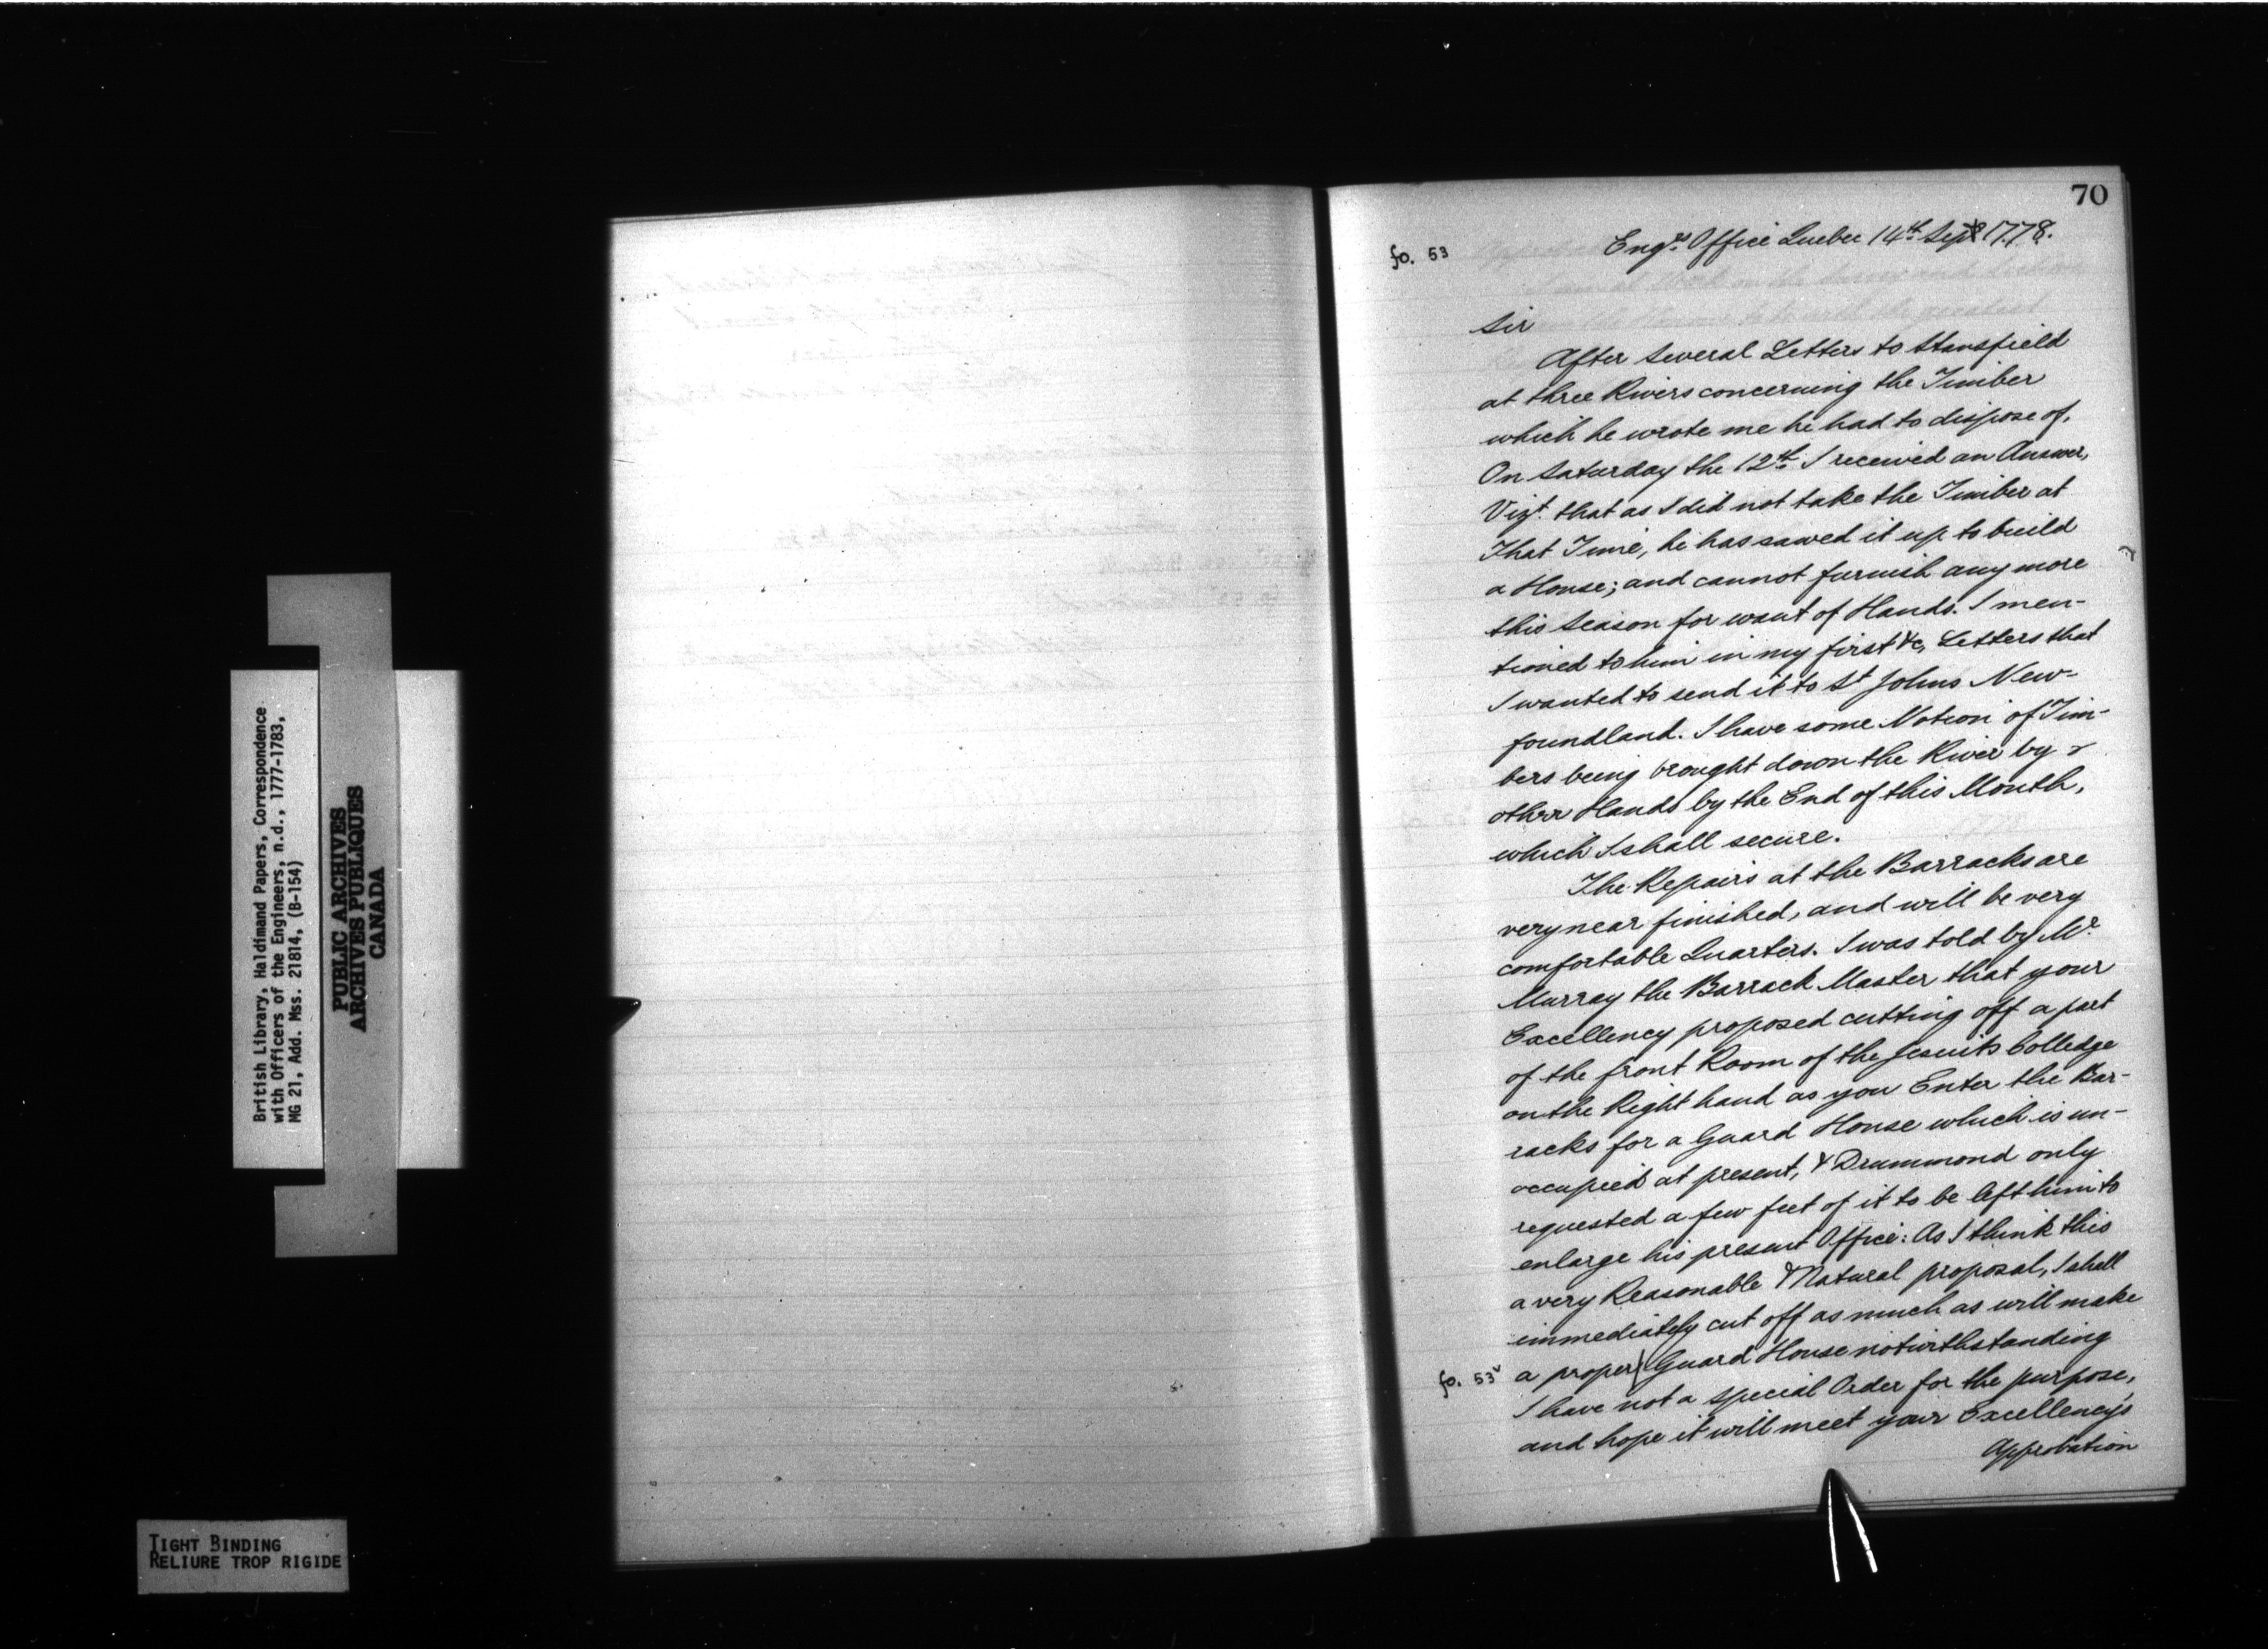 British Library, Haldimand Papers, Correspondence
with Officers of the Engineers, n.d., 1777-1783,
MG 21, Add. Mss. 21814, (B-154)
PUBLIC ARCHIVES
ARCHIVES PUBLIQUES
CANADA
TIGHT BINDING
RELIURE TROP RIGIDE
70
fo. 53
Engrs. Office Quebec 14th Sept 1778.
Sir
After several Letters to Stansfield
at three Rivers concerning the Timber
which he wrote me he had to dispose of,
On Saturday the 12th I received an Answer,
Vizt. that as I did not take the Timber at
That Time, he has sawed it up to build
a House; and cannot furnish any more
this Season for want of Hands. I men-
tioned to him in my first &c, Letters that
I wanted to send it to St Johns New-
foundland. I have some Notion of Tim-
bers being brought down the River by
other Hands by the End of this Month,
which I shall secure.
The Repairs at the Barracks are
very near finished, and will be very
comfortable Quarters. I was told by Mr.
Murray the Barrack Master that your
Excellency proposed cutting off a part
of the front Room of the Jesuits Colledge
on the Right hand as you Enter the Bar-
racks for a Guard House which is un-
occupied at present, & Drummond only
requested a few feet of it to be left him to
enlarge his present Office: As I think this
a very Reasonable & Natural proposal, I shall
immediately cut off as much as will make
fo. 53v a proper Guard House notwithstanding
I have not a special Order for the purpose,
and hope it will meet your Excellency's
Approbation